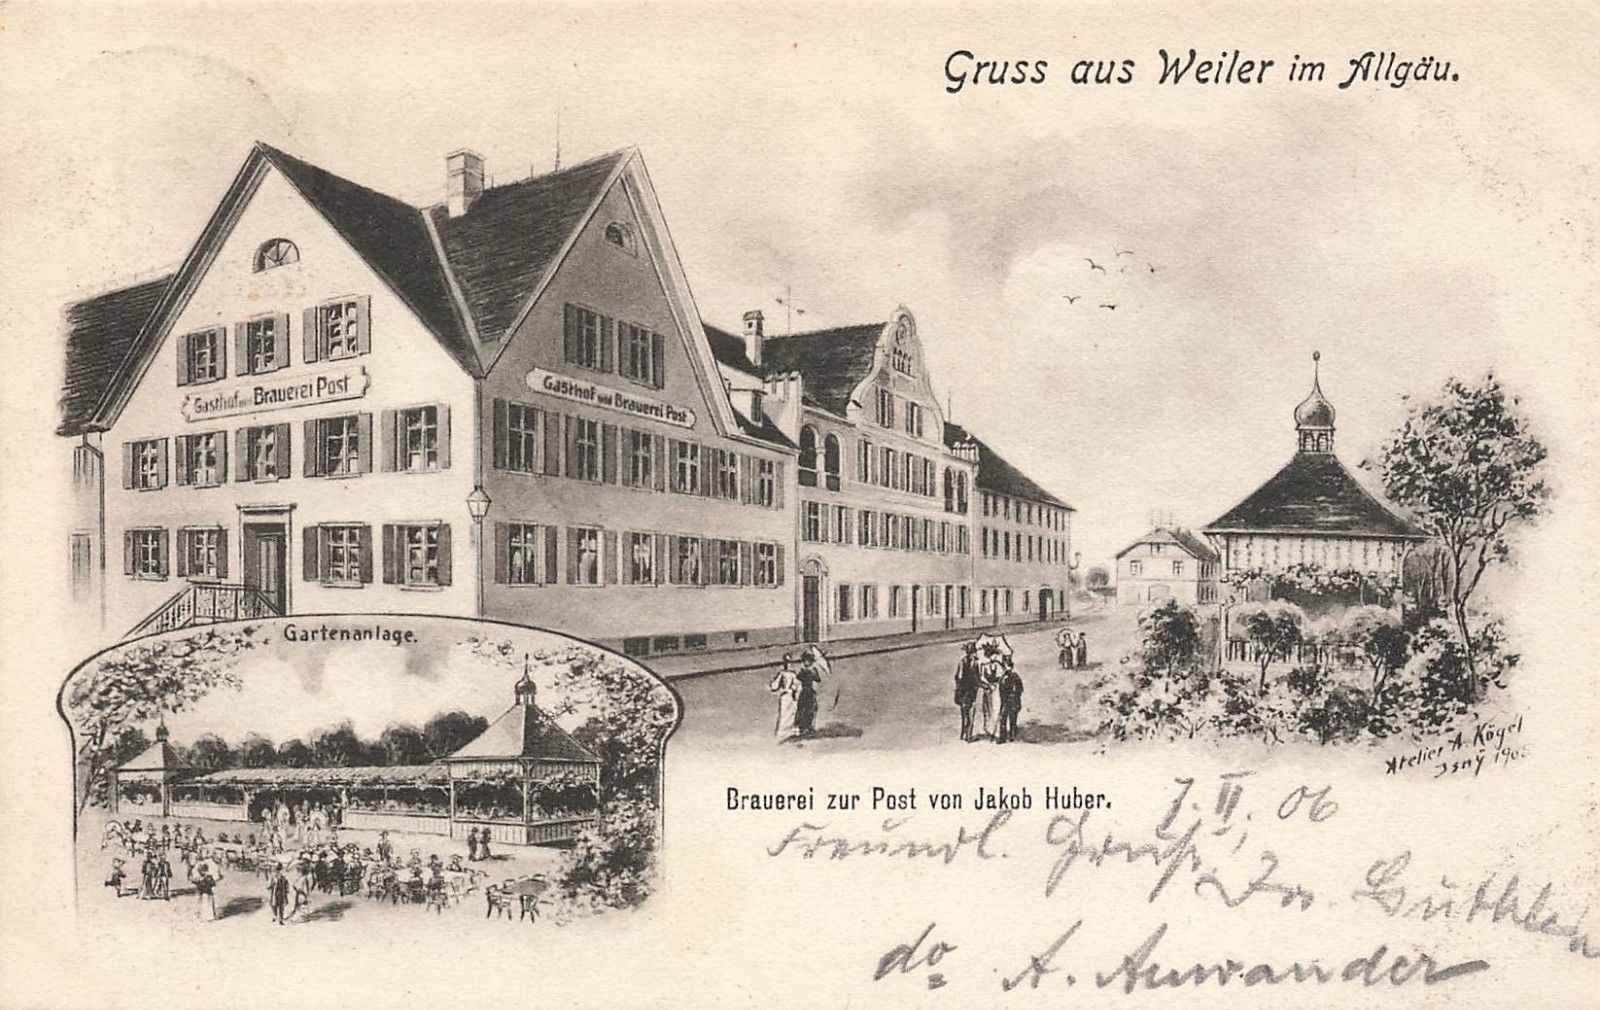 Gruss aus Weiler im Allgäu.
Gasthof und Brauerei Post
Gasthof und Brauerei Post
Gartenanlage.
Atelier A. Kögel
Isny
Brauerei zur Post von Jakob Huber.
7. II. 06
Freundl. Gruss,
do A. Anwander